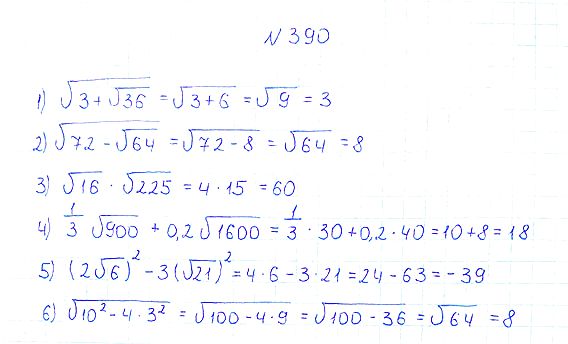 N 390
1) √(3 + √36) = √(3 + 6) = √9 = 3
2) √(72 - √64) = √(72 - 8) = √64 = 8
3) √16 · √225 = 4 · 15 = 60
4) 1/3 √900 + 0,2 √1600 = 1/3 · 30 + 0,2 · 40 = 10 + 8 = 18
5) (2√6)² - 3(√21)² = 4 · 6 - 3 · 21 = 24 - 63 = - 39
6) √(10² - 4 · 3²) = √(100 - 4 · 9) = √(100 - 36) = √64 = 8